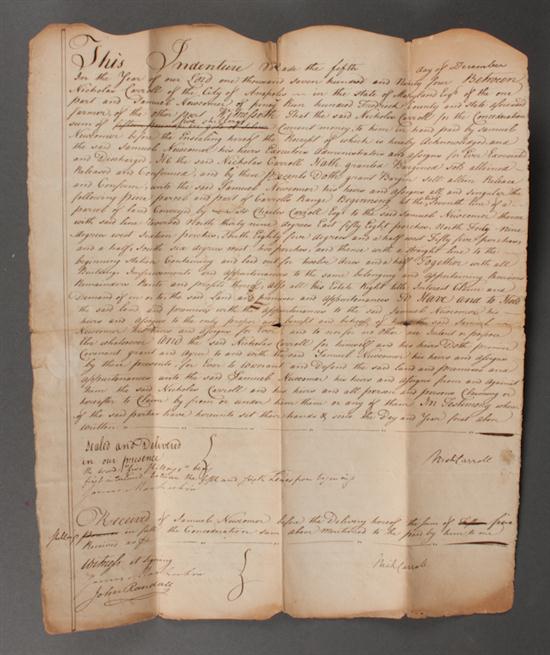 This Indenture Made the fifth day of December
In the Year of our Lord one thousand seven hundred and Ninty four Between
Nicholas Carroll of the City of Anapolis in the State of Maryland Esqr of the one
part and Samuel Newcomer of piney Run hundred Fredrick County and State aforesaid
farmer of the other part Witnesseth That the said Nicholas Carroll for the Consideration
sum of five shillings Current money to him in hand paid by Samuel
Newcomer before the Ensealing hereof the Receipt of which is hereby Acknowledged and
the said Samuel Newcomer his heirs Executors Administrators and assigns for Ever
and Discharged. He the said Nicholas Carroll Hath granted Bargained sold aliened
Released and Confirmed, and by these Presents Doth grant Bargain Sell alien Release
and Confirm unto the said Samuel Newcomer his heirs and assigns all and singular the
following piece parcel and part of Carrolls Range Beginning at the line of a
parcel of Land Conveyed by Charles Carroll Esqr to the said Samuel Newcomer thence
with said line North thirty nine degrees East fifty Eight perches North Forty nine
degrees west Sixteen perches South Eighty five degrees and a half west Fifty five perches
and a half, South Six degrees west perches and thence with a straight line to the
beginning Containing and laid out for twelve Acres and a half Together with all
Buildings Improvements and appurtenances to the same belonging and appertaining
Remainders Rents and profits thereof also all his Estate Right title Interest Claim and
Demand of in or to the said Land and premises and appurtenances To Have and to Hold
the said land and premises with the appurtenances to the said Samuel Newcomer his
heirs and assigns to the only proper use benefit and behoof of the said Samuel
Newcomer his heirs and assigns for Ever and to no other Intent or purpose
whatsoever And the said Nicholas Carroll for himself and his heirs Doth
Covenant grant and agree to and with the said Samuel Newcomer his heirs and assigns
by these presents for Ever to Warrant and Defend the said land and premises and
appurtenances unto the said Samuel Newcomer his heirs and assigns from and against
him the said Nicholas Carroll and his heirs and all person and persons Claiming or
hereafter to Claim by from or under him them or any of them In Testimony where
of the said parties have hereunto set their hands & seals the Day and Year first above
written
Sealed and Delivered
in our presence
the word "five shillings" being
first interlined between the fifth and sixth lines from beginning
Nich: Carroll
Received of Samuel Newcomer before the Delivery hereof the Sum of five
shillings in full the Consideration sum above Mentioned to be paid by him to me
Received as
Witness at signing
Nich: Carroll
John Randall